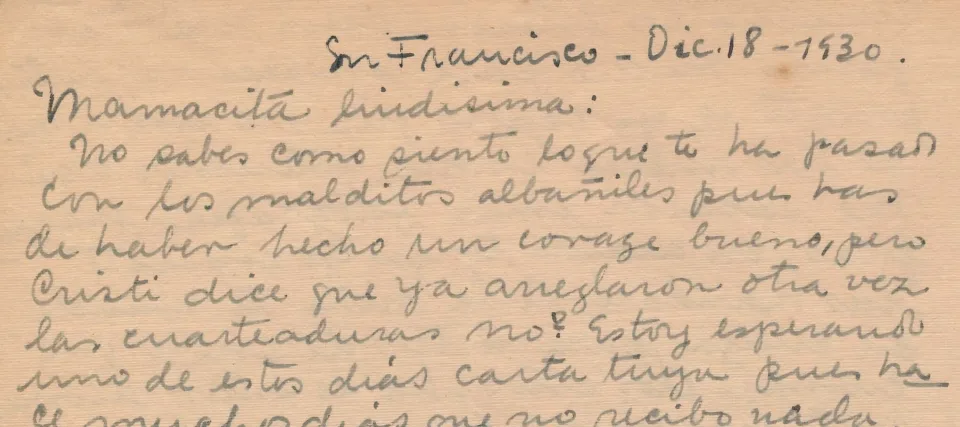 Sn Francisco - Dic. 18 - 1930.
Mamacita lindisima:
No sabes como siento loque te ha pasado
con los malditos albañiles pues has
de haber hecho un corage bueno, pero
Cristi dice que ya arreglaron otra vez
las cuarteaduras no? Estoy esperando
uno de estos dias carta tuya pues ha_
ce muchos dias que no recibo nada.